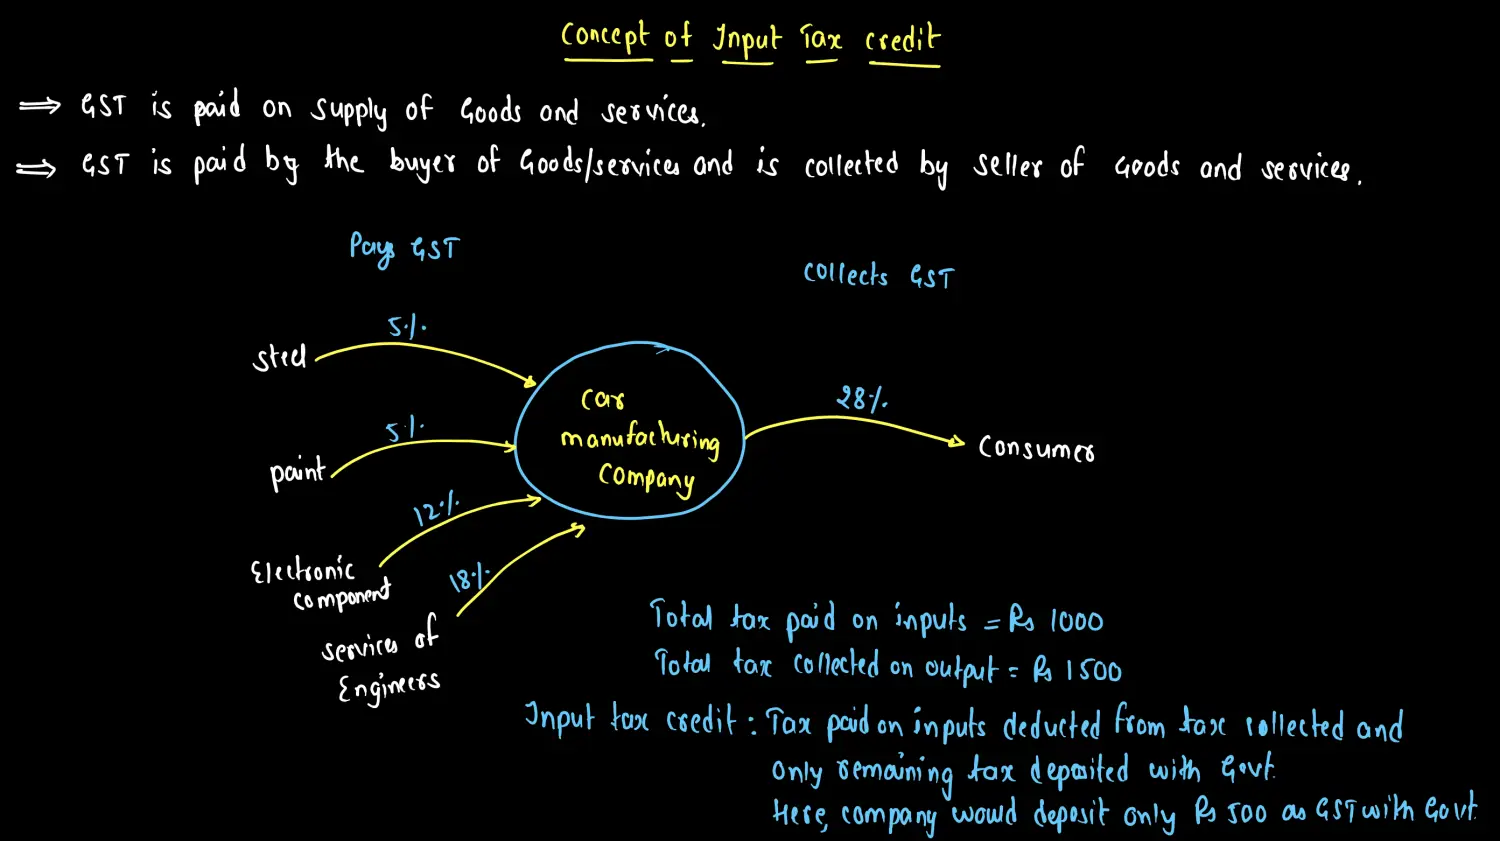 Concept of Input Tax credit
⇒ GST is paid on supply of Goods and services.
⇒ GST is paid by the buyer of Goods/services and is collected by seller of Goods and services.
Pays GST
collects GST
5%
steel
28%
car
manufacturing
company
consumer
5%
paint
12%
Electronic
component
18%
services of
Engineers
Total tax paid on inputs = Rs 1000
Total tax collected on output = Rs 1500
Input tax credit : Tax paid on inputs deducted from tax collected and
only remaining tax deposited with Govt.
Here, company would deposit only Rs 500 as GST with Govt.